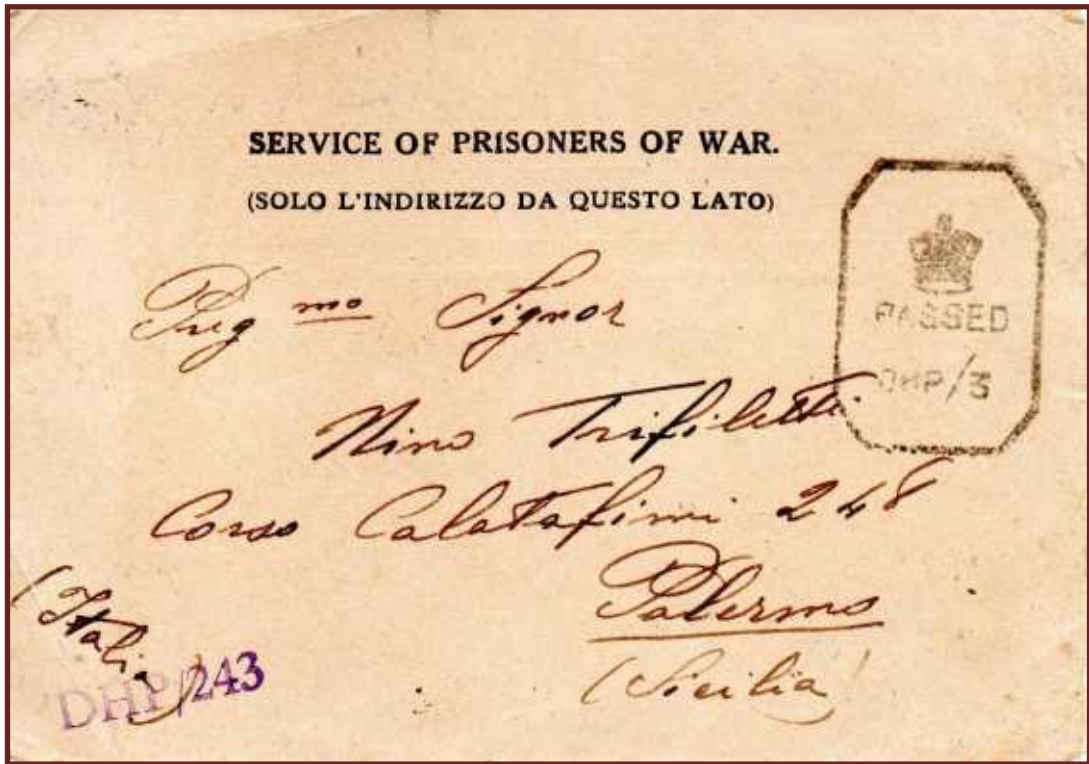 SERVICE OF PRISONERS OF WAR.
(SOLO L'INDIRIZZO DA QUESTO LATO)
PASSED
DHP/3
Preg mo Signor
Nino Trifiletti
Corso Calatafimi 248
Palermo
(Sicilia)
(Italia)
DHP/243